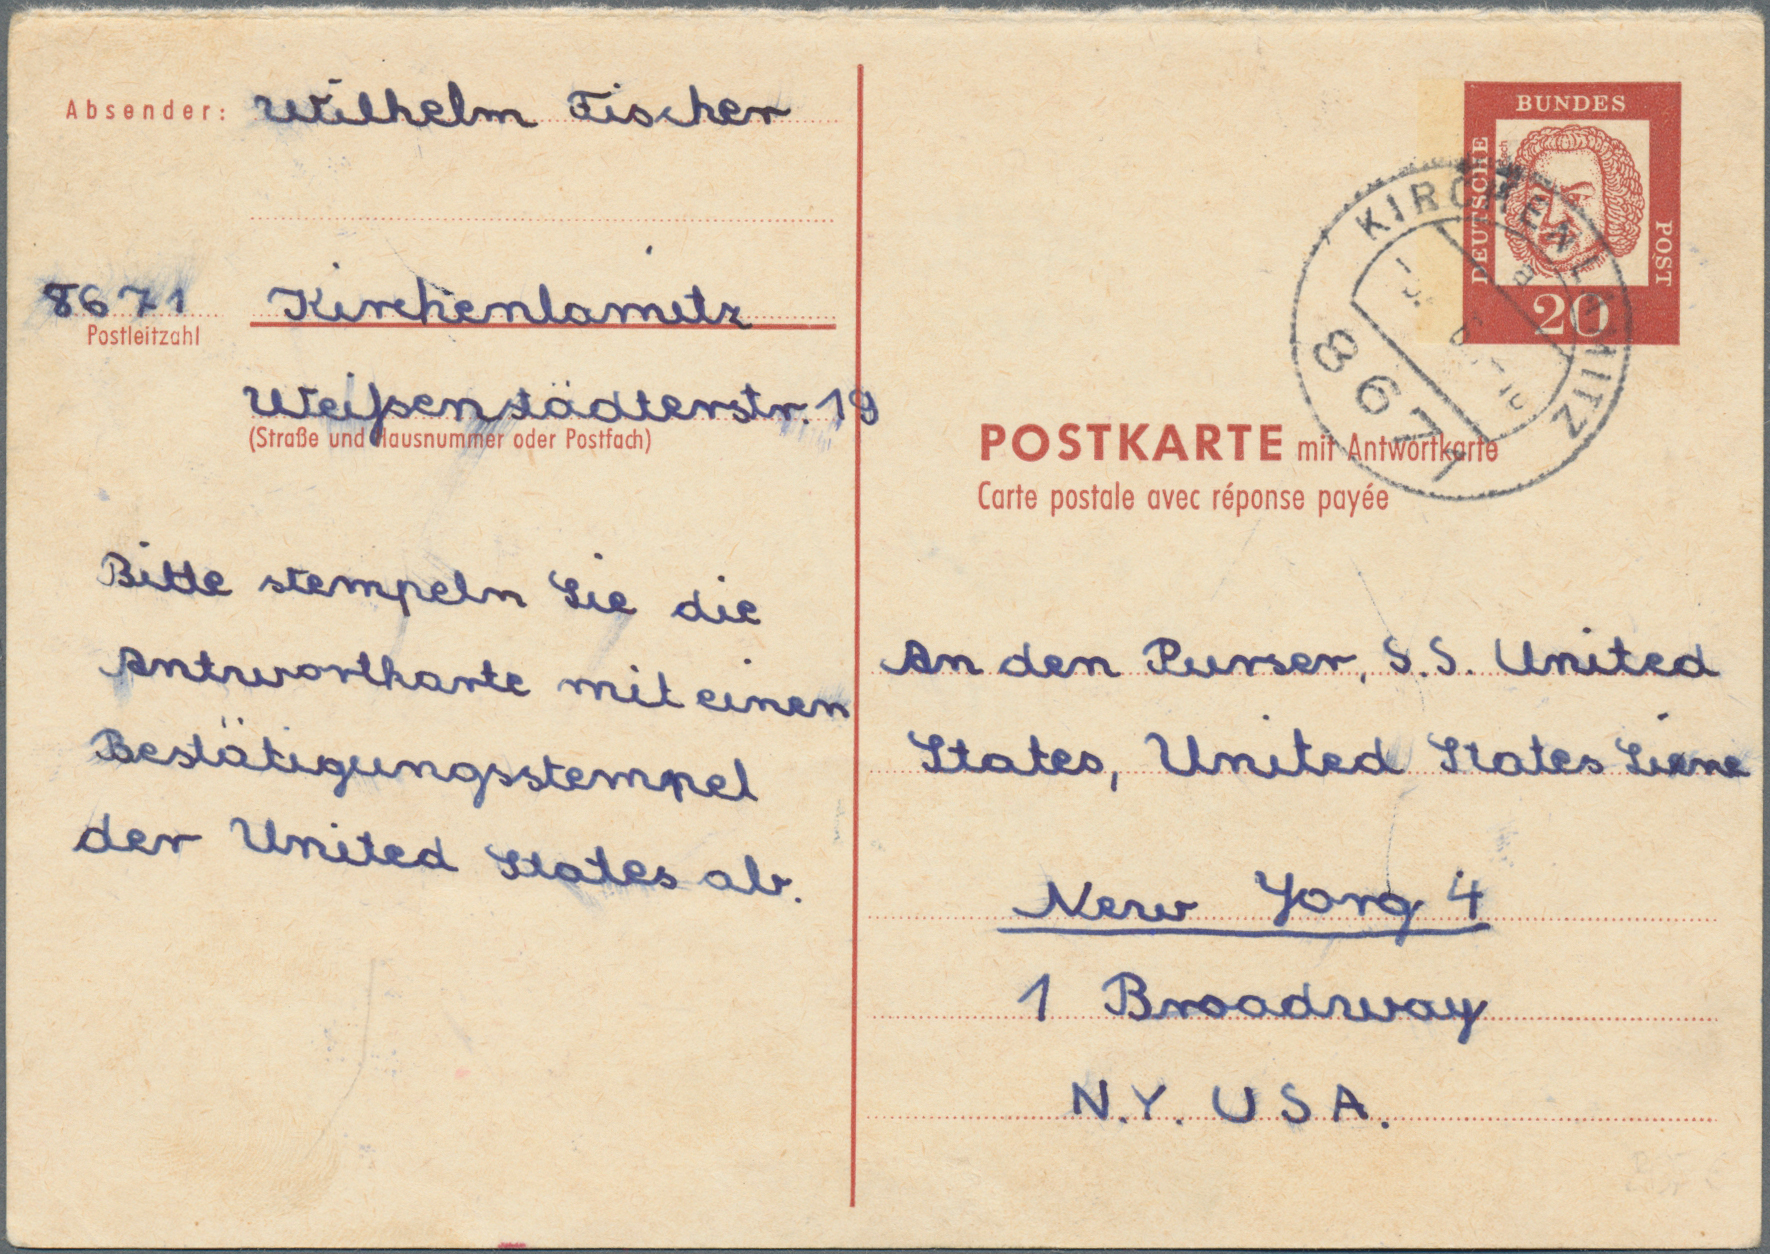 Absender: Wilhelm Fischer
8671 Kirchenlamitz
Postleitzahl
Weißenstädterstr. 19
(Straße und Hausnummer oder Postfach)
Bitte stempeln Sie die
Antwortkarte mit einen
Bestätigungsstempel
der United States ab.
BUNDES
DEUTSCHE
POST
20
KIRCHENLAMITZ
8671
POSTKARTE mit Antwortkarte
Carte postale avec réponse payée
An den Purser, S.S. United
States, United States Liene
New Yorq 4
1 Broadway
N.Y. U S A.